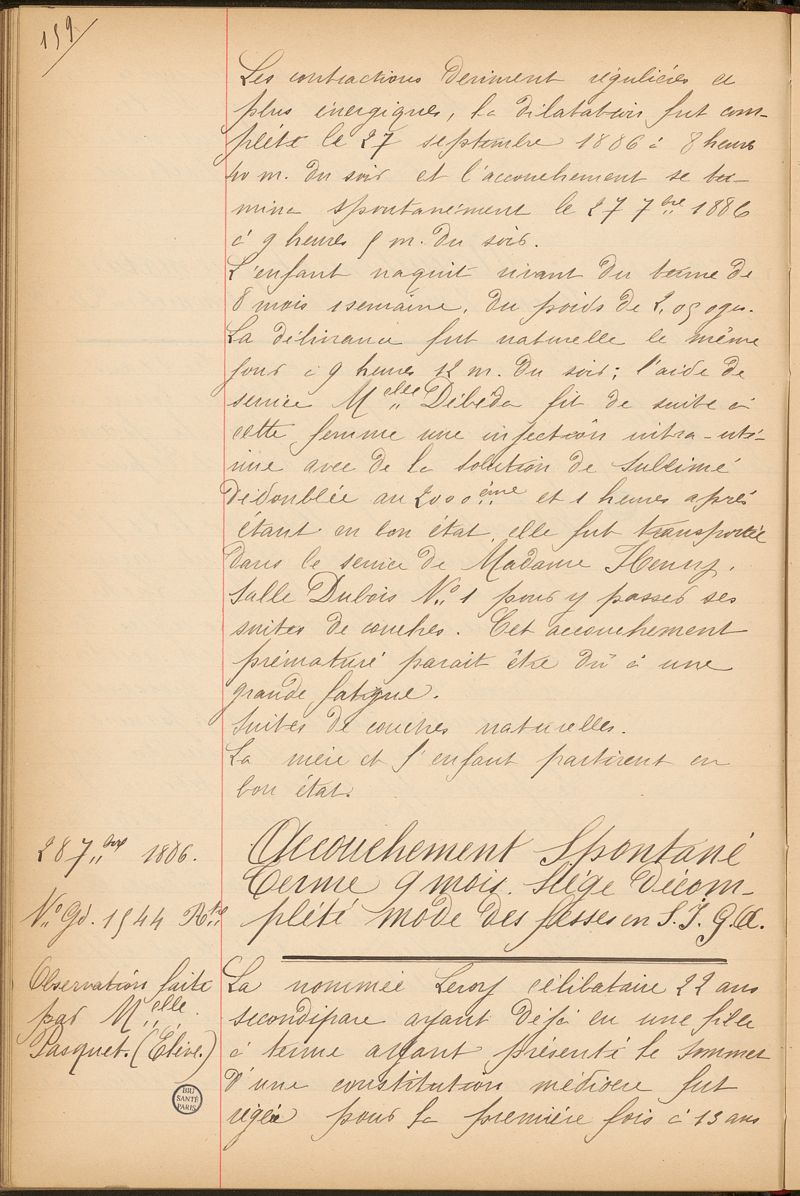 159
Les contractions devinrent régulières et
plus énergiques, la dilatation fut com-
plète le 27 septembre 1886 à 8 heures
40 m. du soir et l'accouchement se ter-
mina spontanément le 27 7bre 1886
à 9 heures 5 m. du soir.
L'enfant naquit vivant du terme de
8 mois 1 semaine, du poids de 2,050 gr.
La délivrance fut naturelle le même
jour à 9 heures 12 m. du soir; l'aide de
service Melle Débéda fit de suite à
cette femme une injection intra-uté-
rine avec de la solution de sublimé
dédoublée au 2000ème et 1 heures après
étant en bon état, elle fut transportée
dans le service de Madame Henry.
Salle Dubois No 1 pour y passer ses
suites de couches. Cet accouchement
prématuré parait être dû à une
grande fatigue.
Suites de couches naturelles.
La mère et l'enfant partirent en
bon état.
28 7bre 1886.
No Gd. 1544 Rtre
Observation faite
par Melle
Pasquet. (Elève.)
Accouchement Spontané
Terme 9 mois. Siège décom-
plété mode des fesses en S.I.G.A.
La nommée Leroy célibataire 22 ans
secondipare ayant déjà eu une fille
à terme ayant présenté le sommet
d'une constitution médiocre fut
réglée pour la première fois à 13 ans
BIU
SANTÉ
PARIS